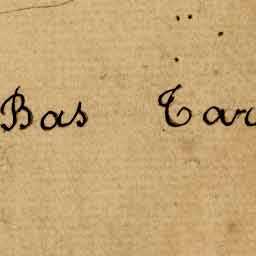 Bas Tar